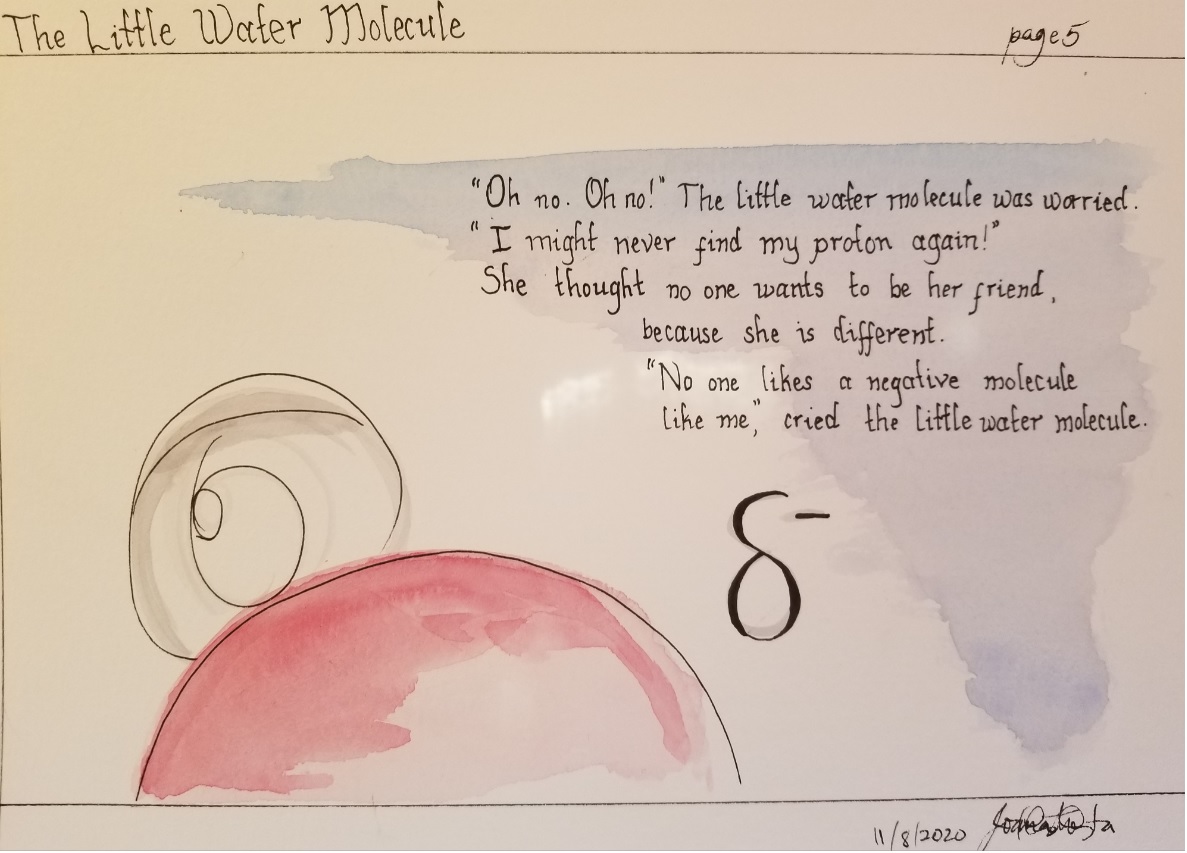 The Little Water Molecule
page 5
"Oh no. Oh no!" The little water molecule was worried.
"I might never find my proton again!"
She thought no one wants to be her friend,
because she is different.
"No one likes a negative molecule
like me," cried the little water molecule.
δ-
11/8/2020